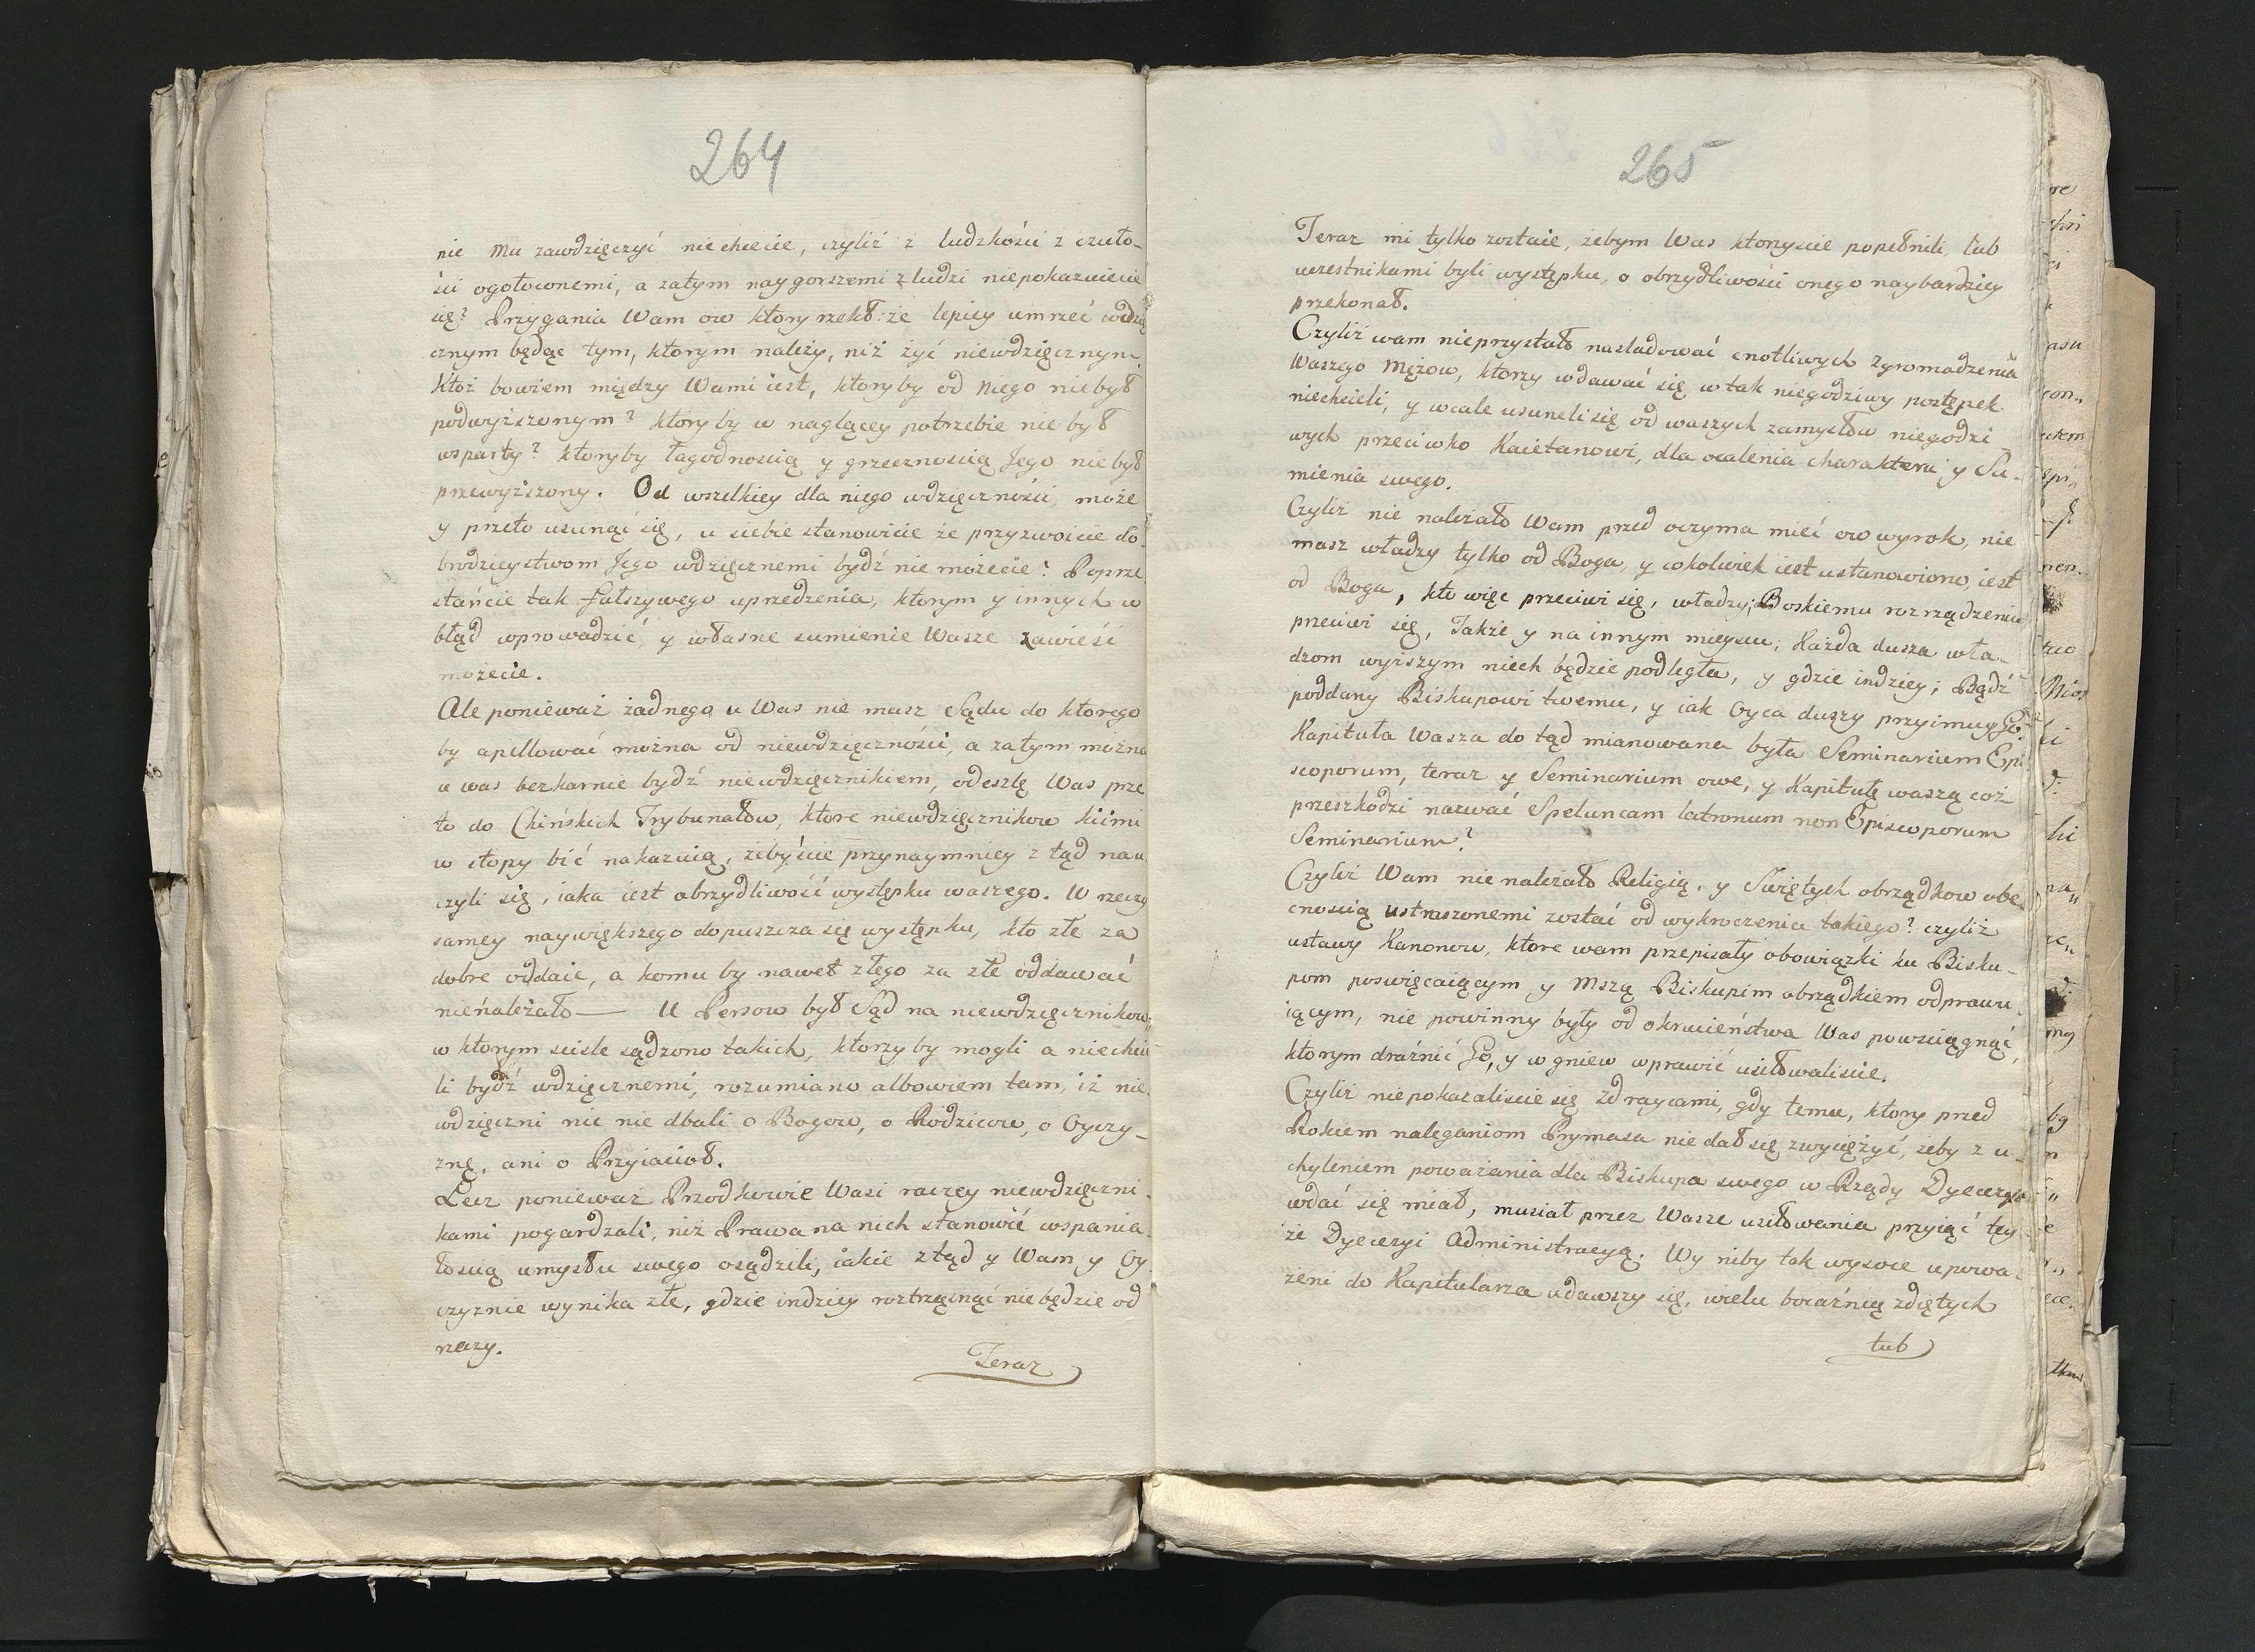 264
nie Mu zawdzięczyć niechcecie, czyliż z ludzkości z czuło-
ści ogołoconemi, a zatym naygorszemi z ludzi niepokazuiecie
się? Przygania Wam ow ktory rzekł: że lepiey umrzeć wdzię
cznym będąc tym, ktorym należy, niż żyć niewdzięcznym.
Ktoż bowiem między Wami iest, ktoryby od Niego niebył
podwyższonym? ktoryby w naglącey potrzebie nie był
wsparty? ktoryby łagodnością y grzecznością Jego niebył
przewyższony. Od wszelkiey dla niego wdzięczności, może
y przeto usunąć się, u siebie stanowicie że przyzwoicie do-
brodzieystwom Jego wdzięcznemi bydź nie możecie? Poprze
stańcie tak fałszywego uprzedzenia, ktorym y innych w
błąd wprowadzić, y własne sumienie Wasze zawieść
możecie.
Ale ponieważ żadnego u Was nie masz Sądu do ktorego
by apellować można od niewdzięczności, a zatym można
u was bezkarnie bydź niewdzięcznikiem, odeszlę Was prze
to do Chińskich Trybunałow, ktore niewdzięcznikow kiimi
w stopy bić nakazuią, żebyście przynaymniey z tąd nau
czyli się, iaka iest obrzydliwość występku waszego. W rzeczy
samey naywiększego dopuszcza się występku, kto złe za
dobre oddaie, a komu by nawet złego za złe oddawać
nienależało — U Persow był Sąd na niewdzięcznikow,
w ktorym scisle sądzono takich, ktorzyby mogli a niechcie
li bydź wdzięcznemi, rozumiano albowiem tam, iż nie
wdzięczni nic nie dbali o Bogow, o Rodzicow, o Oyczy-
znę, ani o Przyiacioł.
Lecz ponieważ Przodkowie Wasi raczey niewdzięczni-
kami pogardzali, niż Prawa na nich stanowić wspania-
łoscią umysłu swego osądzili, iakie ztąd y Wam y Oy-
czyznie wynika złe, gdzie indziey roztrząsnąć niebędzie od
rzeczy.
Teraz
265
Teraz mi tylko zostaie, żebym Was ktorzyscie popełnili, lub
uczestnikami byli występku, o obrzydliwości onego naybardziey
przekonał.
Czyliż wam nieprzystało nasladować cnotliwych Zgromadzenia
Waszego Mężow, ktorzy wdawać się w tak niegodziwy postępek
niechcieli, y wcale usuneli się od waszych zamysłow niegodzi-
wych przeciwko Kaietanowi, dla ocalenia charakteru y Su-
mienia swego.
Czyliż nie należało Wam przed oczyma mieć ow wyrok, nie
masz władzy tylko od Boga, y cokolwiek iest ustanowione, iest
od Boga, kto więc przeciwi się, władzy, Boskiemu rozrządzeniu
przeciwi się, Także y na innym mieyscu; Każda dusza wła-
dzom wyższym niech będzie podległa, y gdzie indziey; Bądź
poddany Biskupowi twemu, y iak Oyca duszy przyimuy Go.
Kapituła Wasza do tąd mianowana była Seminarium Epi
scoporum, teraz y Seminarium owe, y Kapitułę waszą coż
przeszkodzi nazwać Speluncam latronum non Episcoporum
Seminarium?
Czyliż Wam nie należało Religią, y Swiętych obrządkow obe-
cnoscią ustraszonemi zostać od wykroczenia takiego? czyliż
ustawy Kanonow, ktore wam przepisały obowiązki ku Bisku-
pom poswięcaiącym y Mszą Biskupim obrządkiem odprawu
iącym, nie powinny były od okrucieństwa Was powsciągnąć,
ktorym draźnić Go, y w gniew wprawić usiłowaliscie.
Czyliż niepokazaliscie się Zdraycami, gdy temu, ktory przed
Rokiem naleganiom Prymasa nie dał się zwyciężyć, żeby z u-
chyleniem poważania dla Biskupa swego w Rządy Dyecezyi
wdać się miał, musiał przez Wasze usiłowania przyiąć tey
że Dyecezyi Administracyą. Wy niby tak wysoce upowa-
żeni do Kapitularza udawszy się, wielu boiaźnią zdiętych
lub